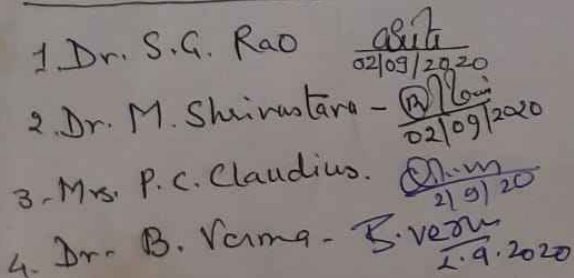 1. Dr. S.G. Rao 02/09/2020
2. Dr. M. Shrivastava - 02/09/2020
3- Mrs. P. C. Claudius. 2/9/20
4- Dr. B. Verma - B. Verma 2.9.2020